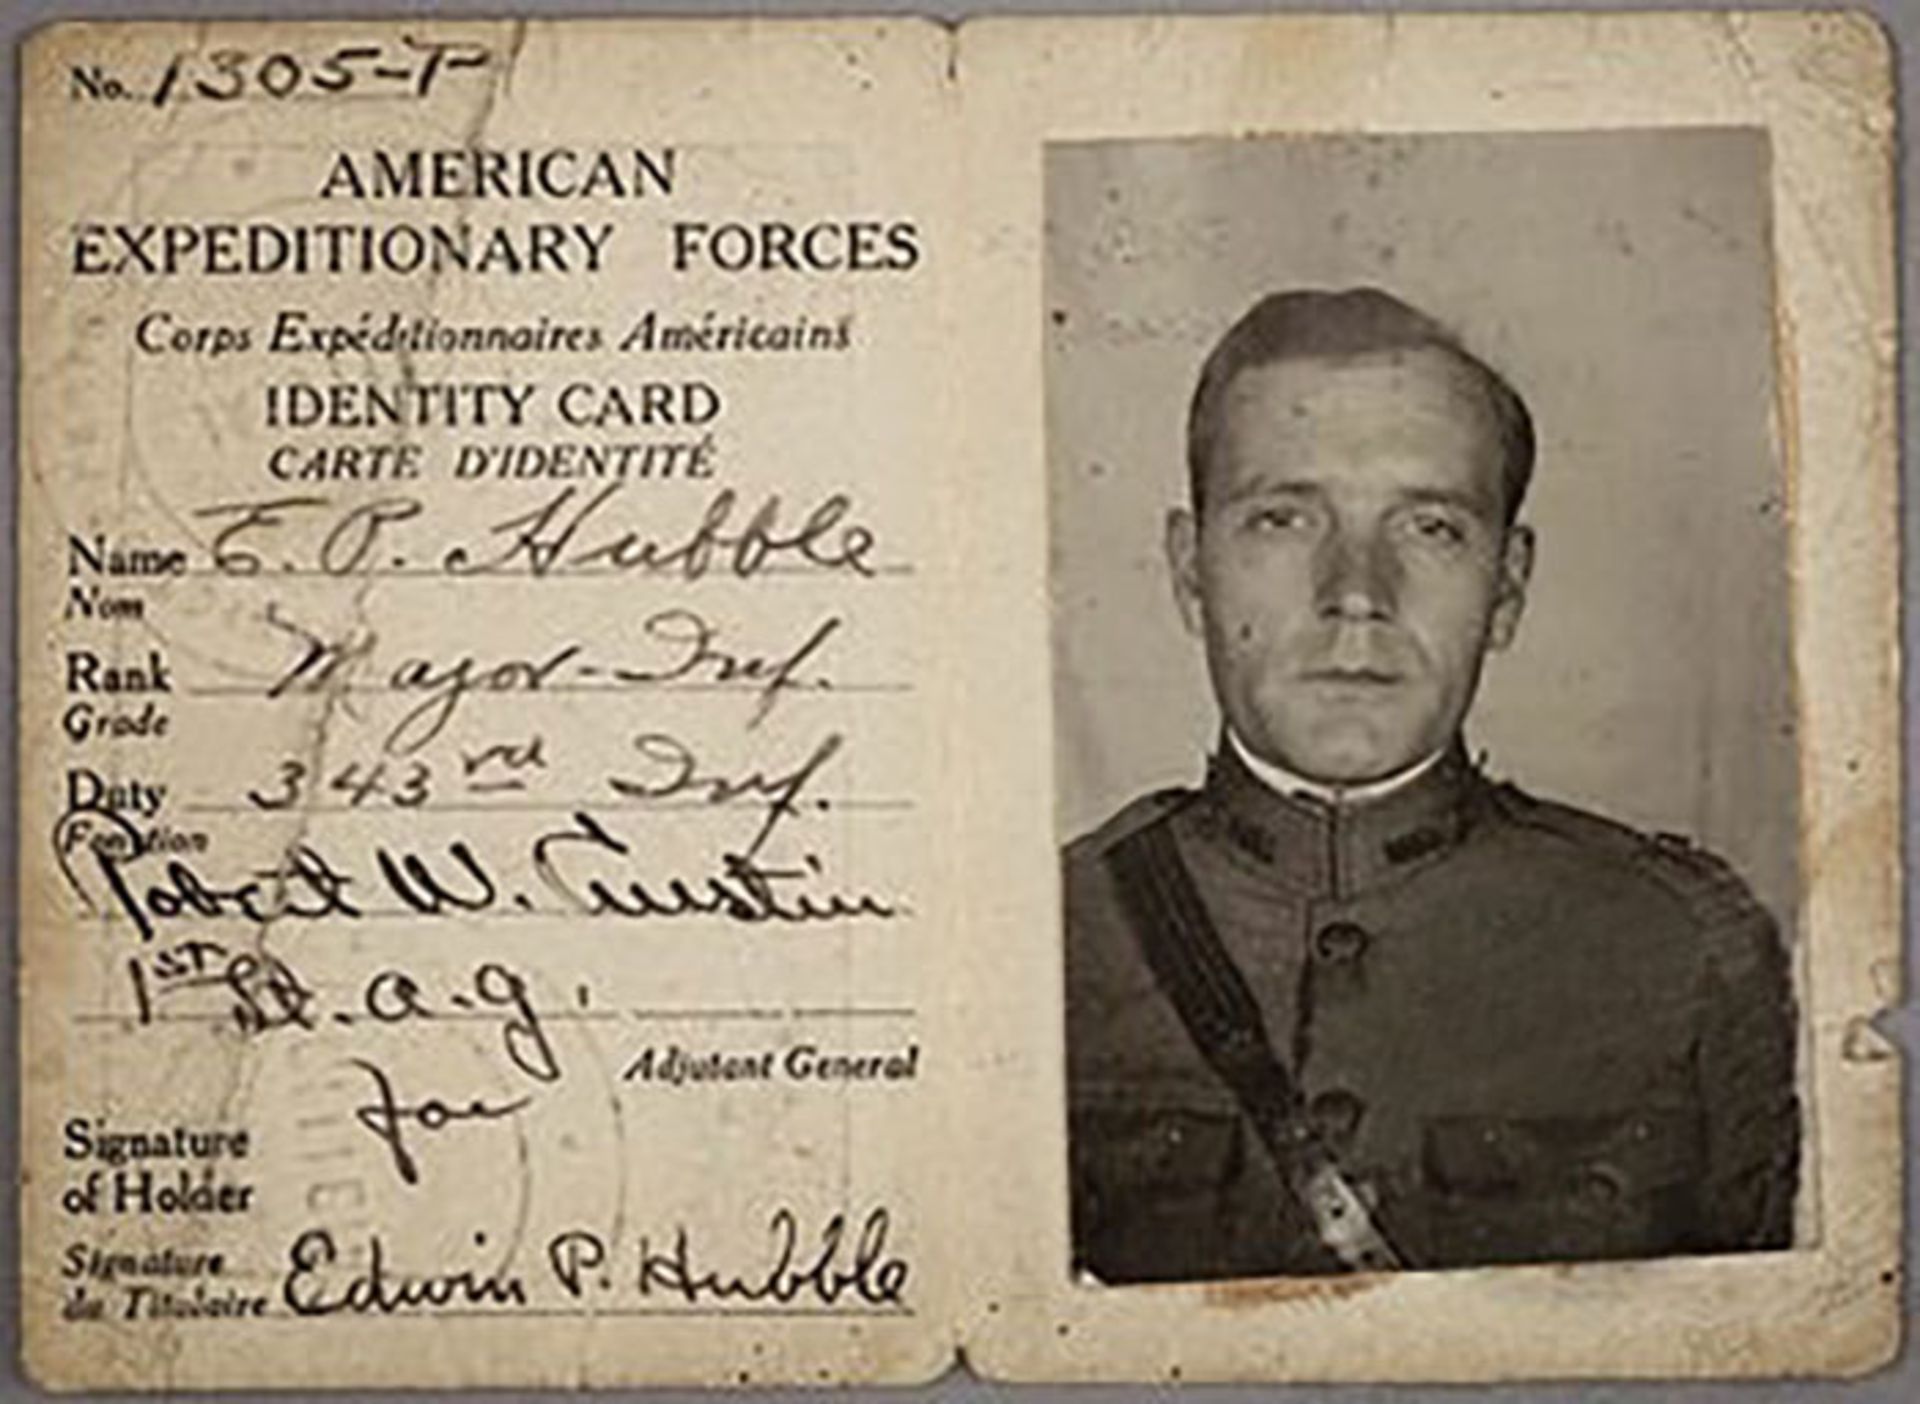 No. 1305-T
AMERICAN
EXPEDITIONARY FORCES
Corps Expéditionnaires Américains
IDENTITY CARD
CARTE D'IDENTITÉ
Name E. P. Hubble
Nom
Rank Major-Inf.
Grade
Duty 343rd Inf.
Fonction
Robert W. Austin
1ST Lt. A.G.
Adjutant General
for
Signature
of Holder
Signature
du Titulaire Edwin P. Hubble